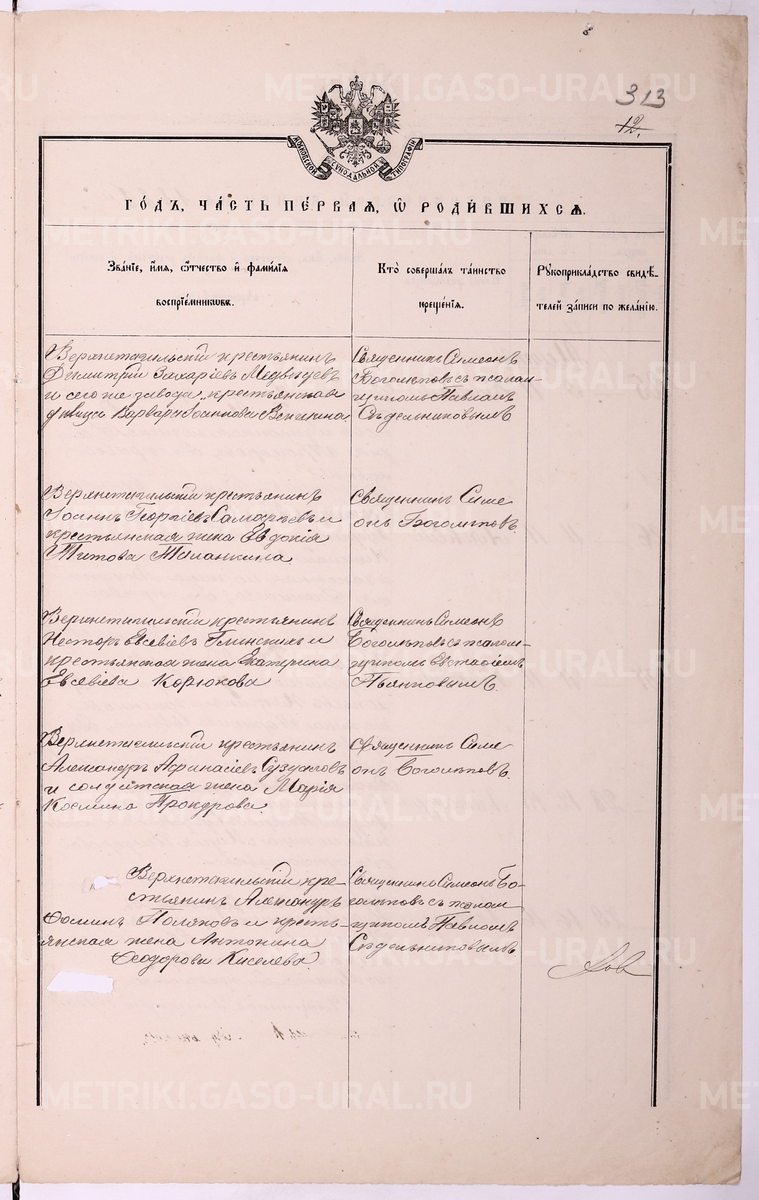 313
12.
МОСКОВСКОЙ СѴНОДАЛЬНОЙ ТИПОГРАФІИ
ГО́ДЪ, ЧА́СТЬ ПЕ́РВАЯ, Ѡ҆ РОДИ́ВШИХСЯ.
Зва́нїе, и҆́мя, ѻ҆́тчество и҆ фами́лїя воспрїе́мниковъ.
Кто̀ соверша́лъ та́инство креще́нїя.
Рꙋкоприкла́дство свидѣ́телей за́писи по жела́нїю.
Верхнетагильскій крестьянинъ
Димитрій Захаріевъ Медвѣдевъ
и сего же завода, крестьянская
дѣвица Варвара Іоаннова
Священникъ Симеонъ
Боголѣповъ съ псалом-
щикомъ Павломъ
Сѣдельниковымъ
Верхнетагильскій крестьянинъ
Іоаннъ Георгіевъ и
крестьянская жена Евдокія
Титова Таланкина
Священникъ Симе
онъ Боголѣповъ.
Верхнетагильскій крестьянинъ
Несторъ Евсевіевъ Глинскихъ и
крестьянская жена Екатерина
Евсевіева Корюкова
Священникъ Симеонъ
Боголѣповъ съ псалом-
щикомъ Евстафіемъ
Пьянковымъ.
Верхнетагильскій крестьянинъ
Александръ Афанасіевъ Суздаловъ
и солдатская жена Марія
Космина
Священникъ Симе
онъ Боголѣповъ.
Верхнетагильскій кре-
стьянинъ Александръ
Ѳоминъ Поляковъ и кресть-
янская жена Антонина
Ѳеодорова Киселева.
Священникъ Симеонъ Бо-
голѣповъ съ псалом-
щикомъ Павломъ
Сѣдельниковымъ
METRIKI.GASO-URAL.RU